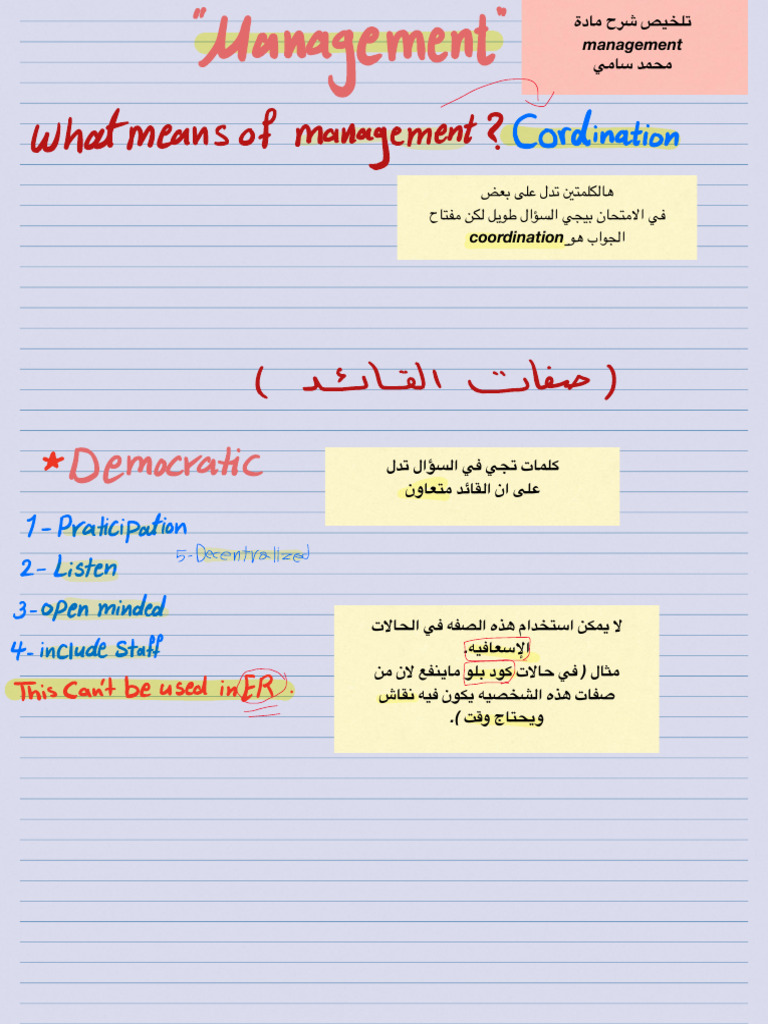 "Management"
تلخيص شرح مادة
management
محمد سامي
What means of management? Cordination
هالكلمتين تدل على بعض
في الامتحان بيجي السؤال طويل لكن مفتاح
الجواب هو coordination
( صفات القائد )
* Democratic
كلمات تجي في السؤال تدل
على ان القائد متعاون
1- Praticipation
5- Decentralized
2- Listen
3- open minded
4- include staff
This Can't be used in ER.
لا يمكن استخدام هذه الصفه في الحالات
الإسعافيه.
مثال ( في حالات كود بلو ماينفع لان من
صفات هذه الشخصيه يكون فيه نقاش
ويحتاج وقت ).